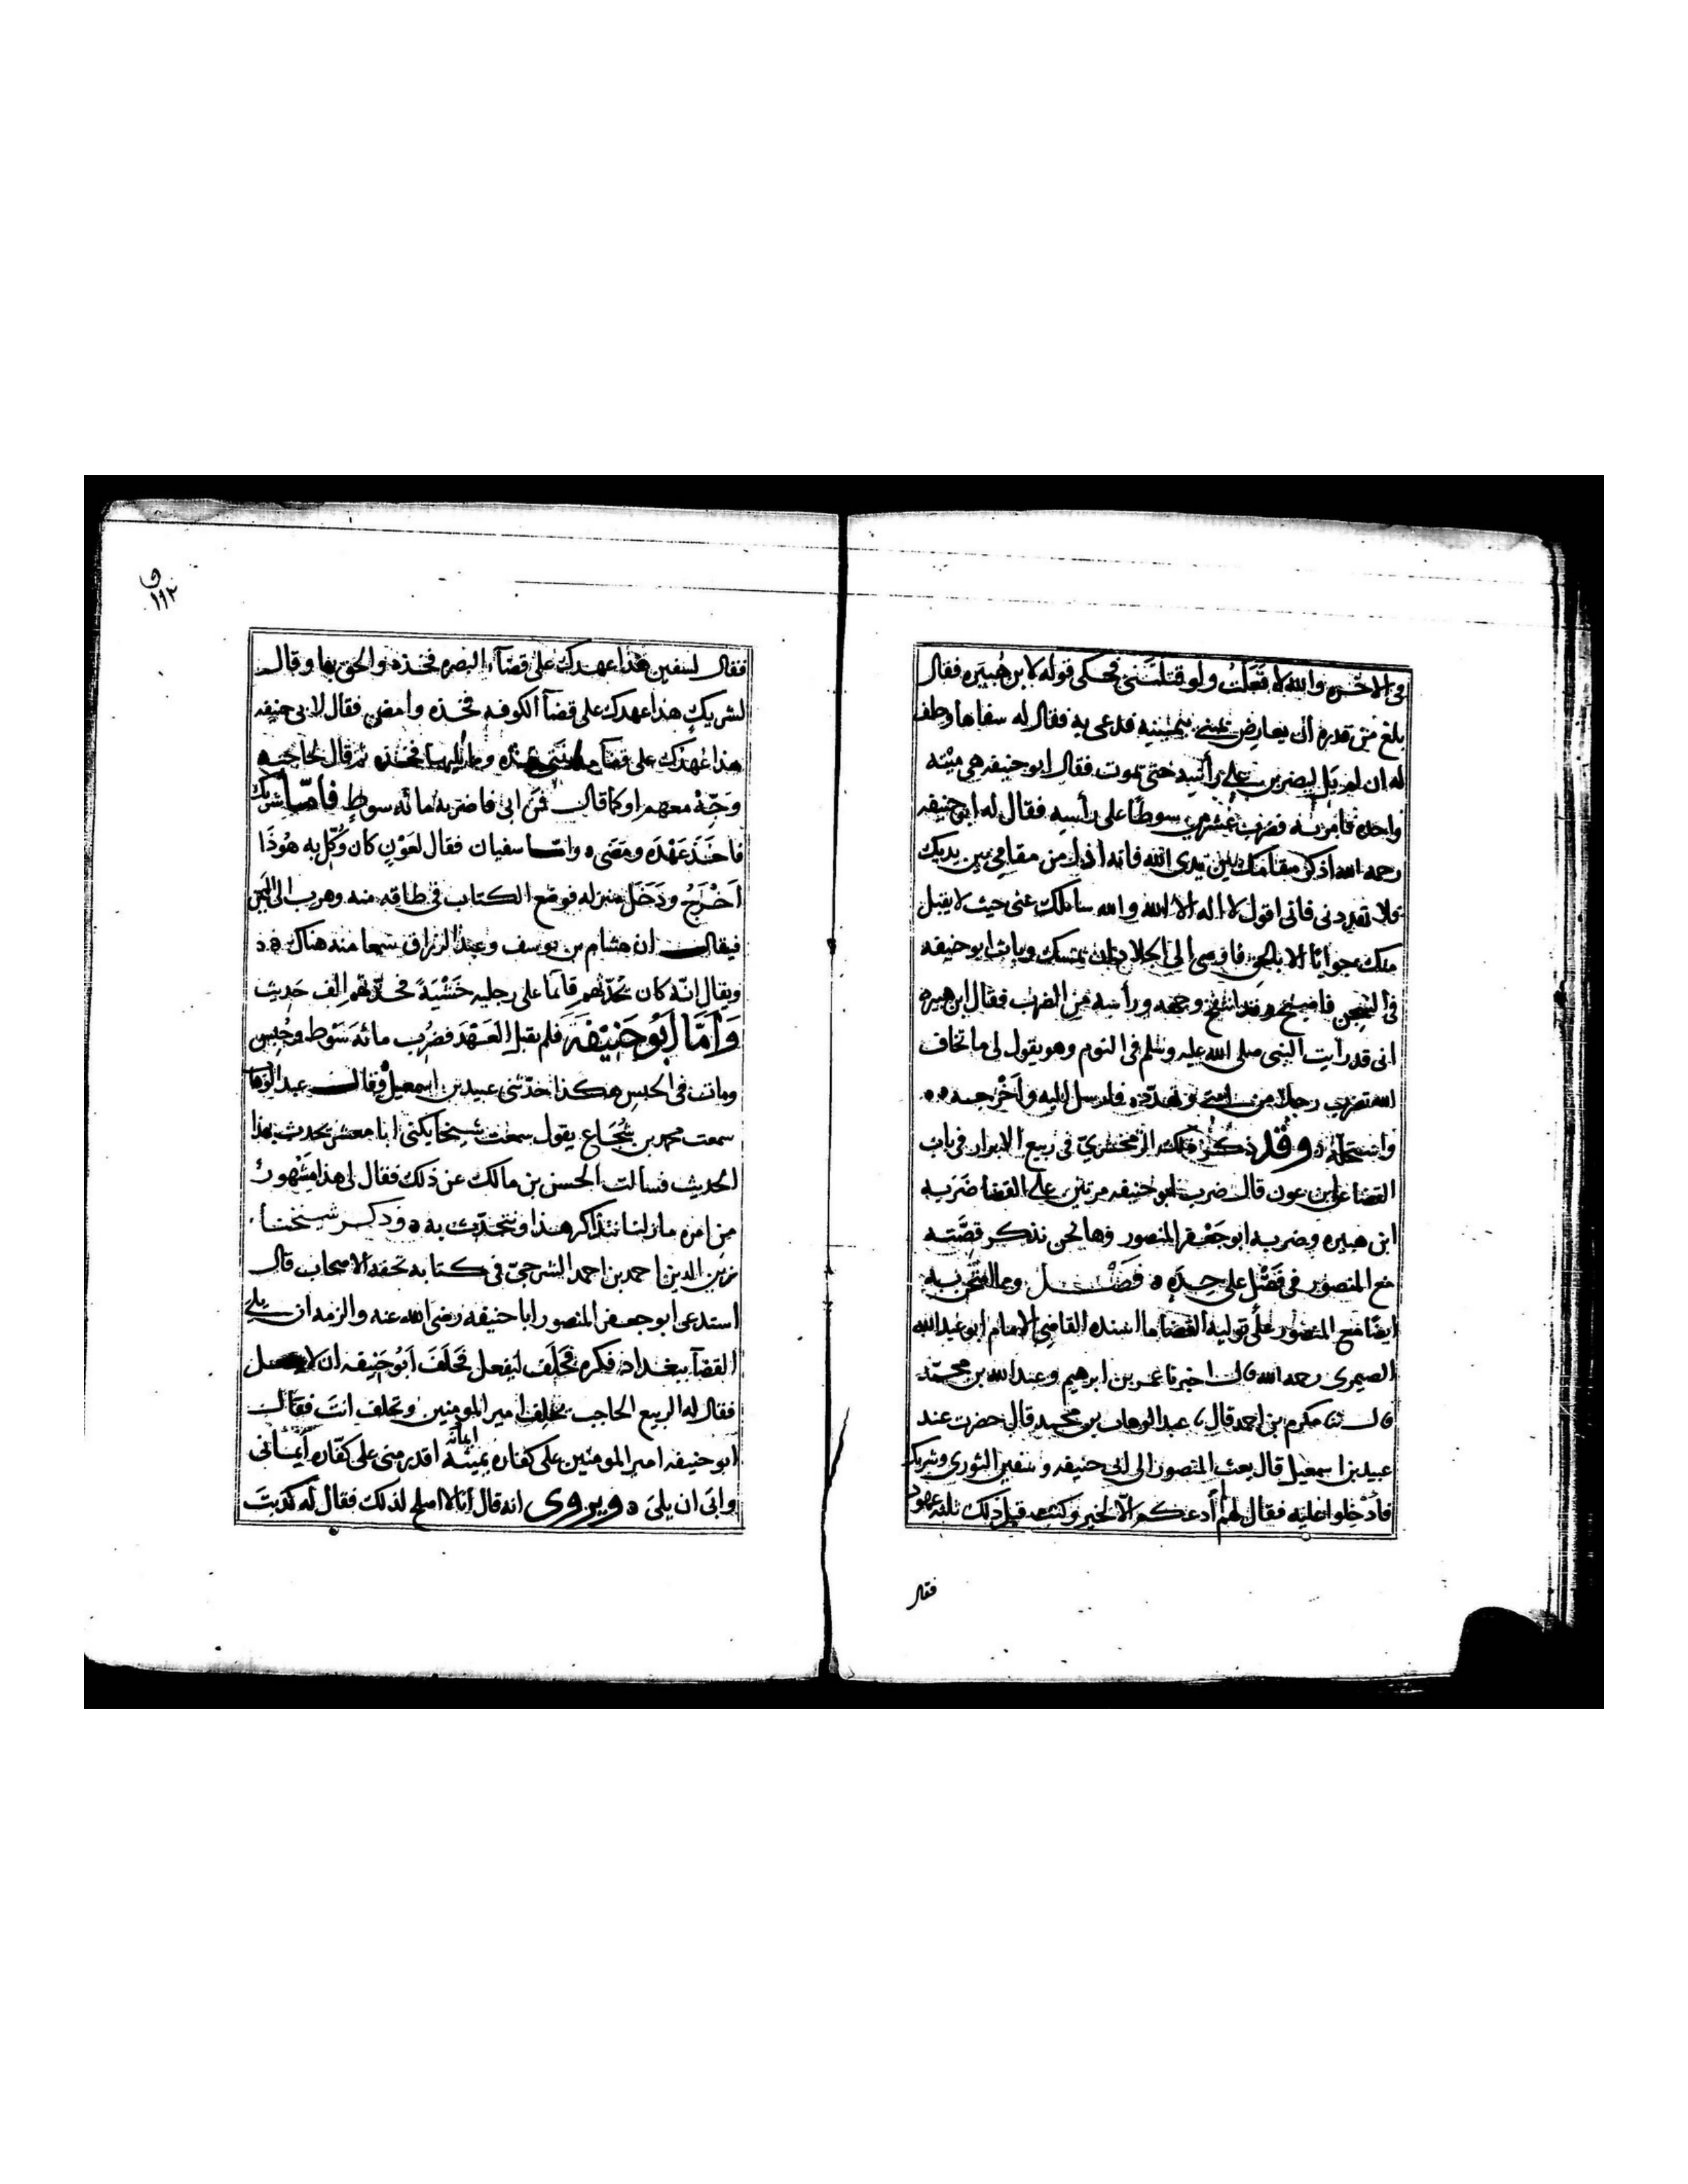 في الآخرة والله لا فَعَلتُ ولو قتلتَني فحكى قوله لابن هُبيَره فقال
بلغ من قدره ان يعارض يميني بيمينه فدعى به فقال له شفاها وحلف
له ان لم يَلِ ليضربن على رأسه حتى يموت فقال ابو حنيفه هي ميْته
واحده فامر به فضرب عشرين سوطًا على رأسه فقال له ابو حنيفه
رحمه الله اذكر مقامك بين يدى الله فانه اذل من مقامي بين يديك
ولا تهددني فاني اقول لا اله الا الله والله سائلك عني حيث لا يقبل
منك جوابًا الا بالحق فاومى الى الجلاد ان يمسك وبات ابو حنيفه
في السجن فاصبح وقد انتفخ وجهه ورأسه من الضرب فقال ابن هبيره
اني قد رأيت النبي صلى الله عليه وسلم في النوم وهو يقول لي ما تخاف
الله تضرب رجلا من امتي وتهدده فارسل اليه وأخْرجه ٥٥
واستحله ٥ وقد ذكر ذلك الزمخشريّ في ربيع الابرار في باب
القضا عن ابن عون قال ضرب ابو حنيفه مرتين على القضا ضَرَبه
ابن هبيره وضربه ابو جَعْفر المنصور وها نحن نذكر قصَّته
مع المنصور في فَصْل على حِدَهٍ ٥ فَصْـــل ومما امتُحن به
ايضًا مع المنصور على توليه القضا ما اسنده القاضي الامام ابو عبد الله
الصيمرى رحمه الله قال اخبرنا عمر بن ابرهيم وعبد الله بن محمّد
قال ثنا مكرم بن احمد قال ثنا عبد الوهاب بن محمد قال حضرت عند
عبيد بن اسمعيل قال بعث المنصور الى ابي حنيفه وسفين الثوري وشريك
فادْخِلوا عليه فقال لهم لم أدعكم الّا لخير وكتب قبل ذلك ثلثه عهود
فقال
و
١١٢
فقال لسفين هذا عهدك على قضآء البصره فخذه والحق بها وقال
لشريك هذا عهدك على قضآ الكوفه فخذه وامض فقال لابي حنيفه
هذا عَهْدك على قضآ مدينتي هذه وما يليها فخذه ثم قال لحاجبه
وَجّه معهم او كما قال فمَن ابى فاضربه مائه سوطٍ فأمّا شريك
فاخَذَ عَهْدَه ومَضَى ٥ وامّا سفيان فقال لعَوْنٍ كان وُكّل به هُوذَا
اَخْرُجُ ودَخَل منزله فوضع الكتاب في طاقه منه وهرب الى اليَمن
فيقال ان هشام بن يوسف وعبد الرزاق سمعا منه هناك ٥٥
ويقال انّه كان يُحدّثهم قائما على رجليه خَشْيَةً فحدّثهم الف حَديث
وَأمَّا أبُو حَنيفَه فلم يقبل العَهْدَ فضُرِب مائه سَوْط وحُبِس
ومات في الحبس هكذا حدّثني عبيد بن اسمعيل وقال عبد الوهاب
سمعت محمد بن شُجَاع يقول سمعت شيخا يكنى ابا معشر يحدث بهذا
الحديث فسالت الحسن بن مالك عن ذلك فقال لي هذا مشهور
مِن امره ما زلنا نتذاكر هذا ونتحدّث به ٥ وذكر شيخنا
زين الدين احمد بن احمد الشرجيّ في كتابه تحفه الاصحاب قال
استدعى ابو جعفر المنصور ابا حنيفه رضي الله عنه والزمه ان يلى
القضآ ببغداد فكره فحَلَف ليفعل فحَلَفَ أبُو حَنيفه ان لا يفعل
فقال له الربيع الحاجب يحلف امير المومنين وتحلف انتَ فقال
ابو حنيفه امير المومنين على كفاره يمينه ايمانه اقدر مني على كفّاره أيماني
وابَى ان يلىَ ٥ ويروى انه قال انا لا اصلح لذلك فقال له كذبتَ